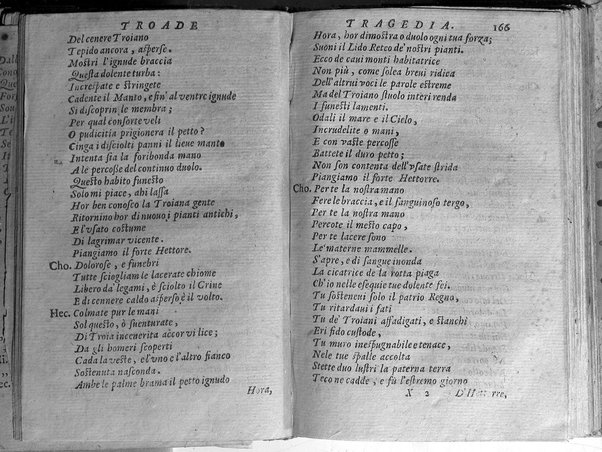 TROADE
Del cenere Troiano
Tepido ancora, asperse.
Mostri l'ignude braccia
Questa dolente turba:
Increspate e stringete
Cadente il Manto, e fin' al ventre ignude
Si discoprin le membra;
Per qual consorte veli
O pudicitia prigionera il petto?
Cinga i disciolti panni il lieue manto
Intenta sia la foribonda mano
A le percosse del continuo duolo.
Questo habito funesto
Solo mi piace, ahi lassa
Hor ben conosco la Troiana gente
Ritornino hor di nuouo i pianti antichi,
E l'vsato costume
Di lagrimar vicente.
Piangiamo il forte Hettore.
Cho. Dolorose, e funebri
Tutte sciogliam le lacerate chiome
Libero da' legami, è sciolto il Crine
E di cennere caldo asperso è il volto.
Hec. Colmate pur le mani
Sol questo, ò suenturate,
Di Troia incenerita accor vi lice;
Da gli homeri scoperti
Cada la veste, e l'vno e l'altro fianco
Sostenuta nasconda.
Ambe le palme brama il petto ignudo
Hora,
TRAGEDIA. 166
Hora, hor dimostra o duolo ogni tua forza;
Suoni il Lido Reteo de' nostri pianti.
Ecco de caui monti habitatrice
Non più, come solea breui ridica
Dell'altrui voci le parole estreme
Ma del Troiano stuolo interi renda
I funesti lamenti.
Odali il mare e il Cielo,
Incrudelite o mani,
E con vaste percosse
Battete il duro petto;
Non son contenta dell'vsate strida
Piangiamo il forte Hettorre.
Cho. Per te la nostra mano
Fere le braccia, e il sanguinoso tergo,
Per te la nostra mano
Percote il mesto capo,
Per te lacere sono
Le materne mammelle.
S'apre, e di sangue inonda
La cicatrice de la rotta piaga
Ch'io nelle esequie tue dolente fei.
Tu sosteneui solo il patrio Regno,
Tu ritardaui i fati
Tu de' Troiani affadigati, e stanchi
Eri fido custode,
Tu muro inespugnabile e tenace,
Nele tue spalle accolta
Stette duo lustri la paterna terra
Teco ne cadde, e fù l'estremo giorno
X 2 D'Het rre,